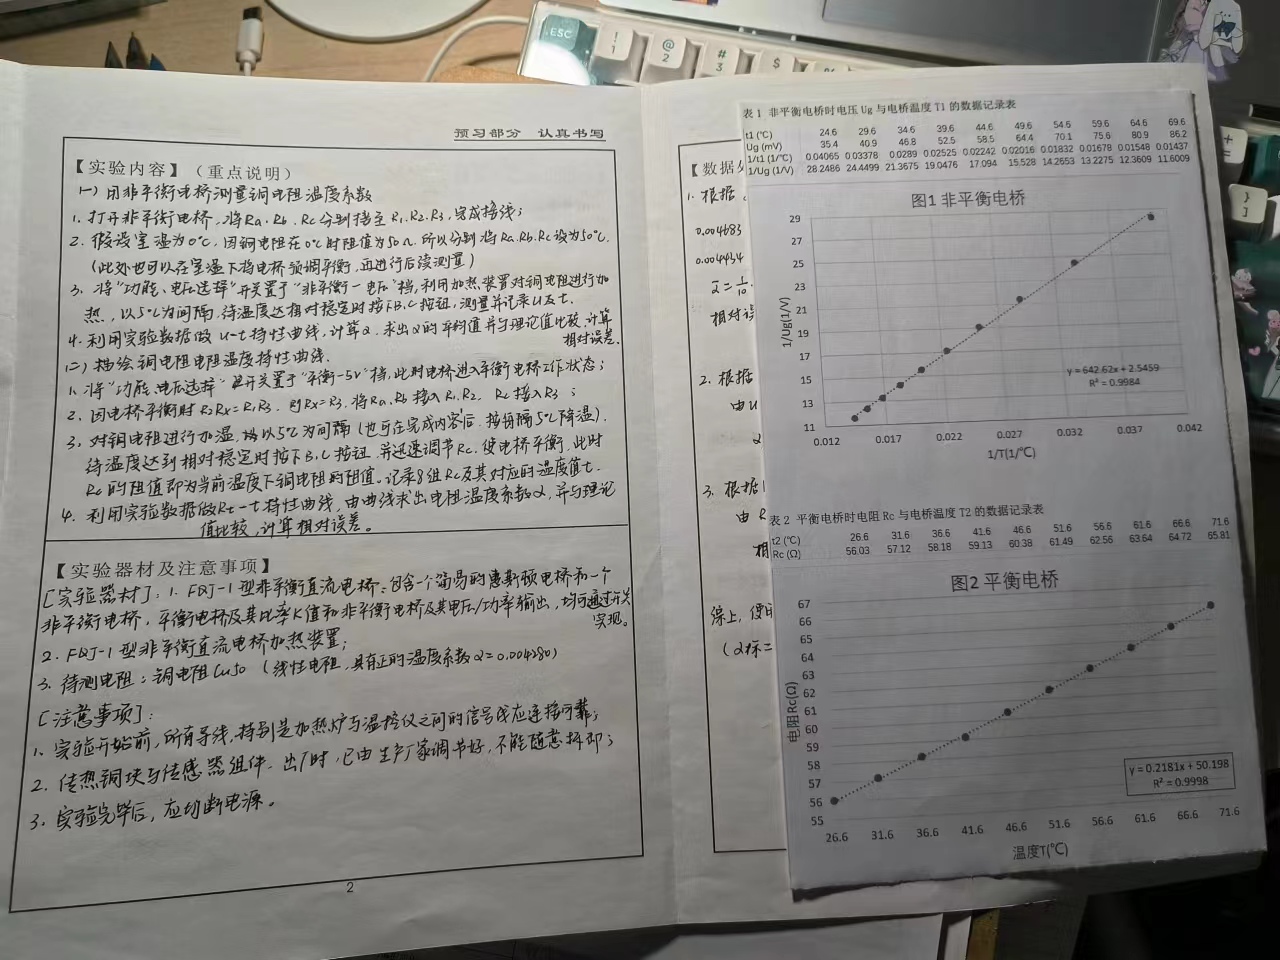 预习部分 认真书写
【实验内容】（重点说明）
(一) 用非平衡电桥测量铜电阻温度系数
1. 打开非平衡电桥，将Ra、Rb、Rc分别接至R1、R2、R3，完成接线；
2. 假设室温为0℃，因铜电阻在0℃时阻值为50Ω，所以分别将Ra、Rb、Rc设为50℃.
（此处也可以在室温下将电桥预调平衡，再进行后续测量）
3. 将“功能、电压选择”开关置于“非平衡—电压”档，利用加热装置对铜电阻进行加
热，以5℃为间隔，待温度达相对稳定时按下B、C按钮，测量并记录U及t.
4. 利用实验数据做U-t特性曲线，计算α，求出α的平均值并与理论值比较，计算
相对误差.
(二) 描绘铜电阻电阻温度特性曲线.
1. 将“功能、电压选择”开关置于“平衡-5V”档，此时电桥进入平衡电桥工作状态；
2. 因电桥平衡时R2Rx=R1R3，则Rx=R3，将Ra、Rb接入R1、R2，Rc接入R3；
3. 对铜电阻进行加温，以5℃为间隔（也可在完成内容后，按每隔5℃降温），
待温度达到相对稳定时按下B、C按钮，并迅速调节Rc，使电桥平衡，此时
Rc的阻值即为当前温度下铜电阻的阻值。记录8组Rc及其对应的温度值t.
4. 利用实验数据做Rt-t特性曲线，由曲线求出电阻温度系数α，并与理论
值比较，计算相对误差。
【实验器材及注意事项】
[实验器材]：1. FQJ-1型非平衡直流电桥：包含一个简易的惠斯顿电桥和一个
非平衡电桥，平衡电桥及其比率K值和非平衡电桥及其电压/功率输出，均可通过开关
实现。
2. FQJ-1型非平衡直流电桥加热装置；
3. 待测电阻：铜电阻Cu50（线性电阻，具有正的温度系数α=0.004280）
[注意事项]：
1. 实验开始前，所有导线，特别是加热炉与温控仪之间的信号线应连接可靠；
2. 传热铜块与传感器组件，出厂时，已由生产厂家调节好，不能随意拆卸；
3. 实验完毕后，应切断电源。
2
【数据处
1. 根据
0.004683
0.004434
ᾱ=1/10
相对误
2. 根据
由U
α
3. 根据
由R
相
综上，使用
(α标=
表1 非平衡电桥时电压 Ug 与电桥温度 T1 的数据记录表
t1 (℃) 24.6 29.6 34.6 39.6 44.6 49.6 54.6 59.6 64.6 69.6
Ug (mV) 35.4 40.9 46.8 52.5 58.5 64.4 70.1 75.6 80.9 86.2
1/t1 (1/℃) 0.04065 0.03378 0.0289 0.02525 0.02242 0.02016 0.01832 0.01678 0.01548 0.01437
1/Ug (1/V) 28.2486 24.4499 21.3675 19.0476 17.094 15.528 14.2653 13.2275 12.3609 11.6009
图1 非平衡电桥
29
27
25
23
21
19
17
15
13
11
1/Ug(1/V)
y = 642.62x + 2.5459
R² = 0.9984
0.012 0.017 0.022 0.027 0.032 0.037 0.042
1/T(1/℃)
表2 平衡电桥时电阻 Rc 与电桥温度 T2 的数据记录表
t2 (℃) 26.6 31.6 36.6 41.6 46.6 51.6 56.6 61.6 66.6 71.6
Rc (Ω) 56.03 57.12 58.18 59.13 60.38 61.49 62.56 63.64 64.72 65.81
图2 平衡电桥
67
66
65
64
63
62
61
60
59
58
57
56
55
电阻Rc(Ω)
y = 0.2181x + 50.198
R² = 0.9998
26.6 31.6 36.6 41.6 46.6 51.6 56.6 61.6 66.6 71.6
温度T(℃)
ESC
!
1
@
2
#
3
$